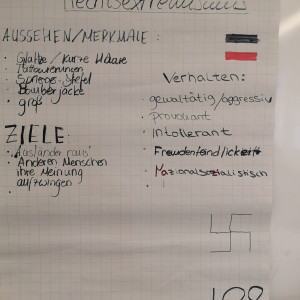 Rechtsextremismus
AUSSEHEN/MERKMALE:
· Glatze/kurze Haare
· Tattowierungen
· Springerstiefel
· Bomberjacke
· groß
ZIELE:
· "Ausländer raus"
· Anderen Menschen
ihre Meinung
aufzwingen
Verhalten:
· gewaltätig/aggressiv
· Provokant
· Intollerant
· Fremdenfeindlickeit
· Nazionalsozialistisch